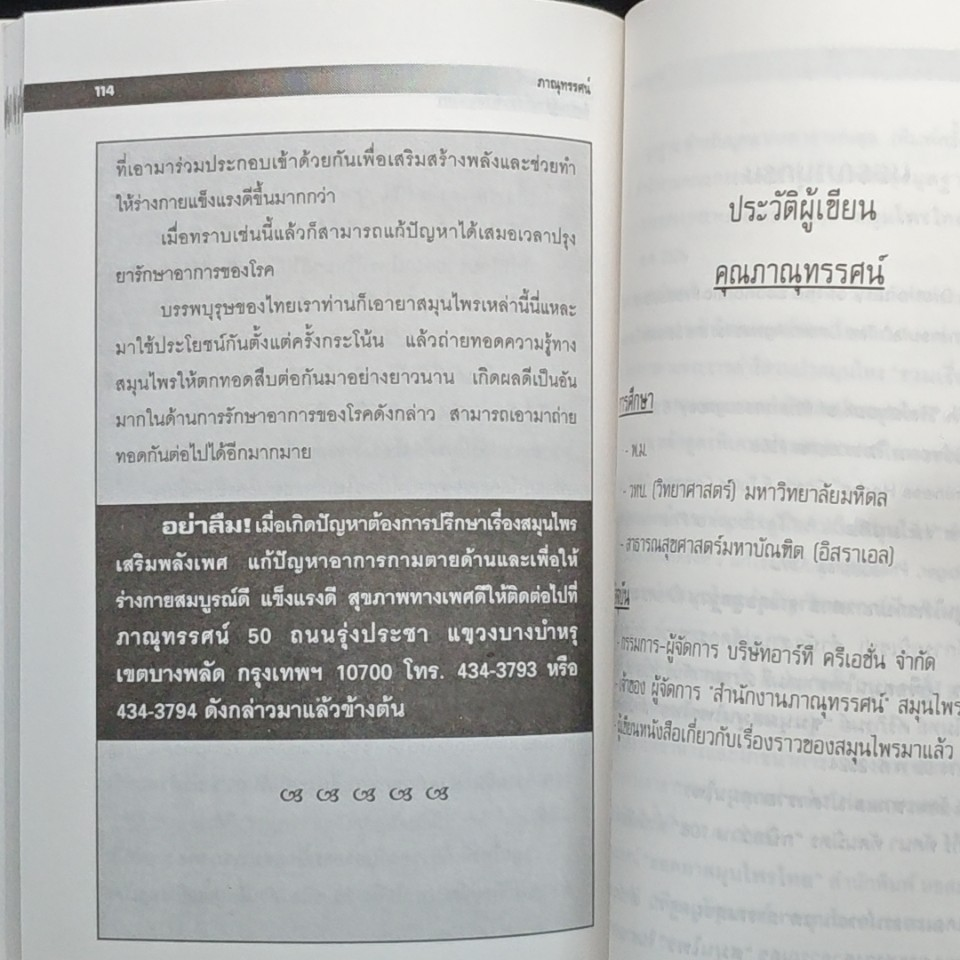 114
ภาณุทรรศน์
ที่เอามาร่วมประกอบเข้าด้วยกันเพื่อเสริมสร้างพลังและช่วยทำ
ให้ร่างกายแข็งแรงดีขึ้นมากกว่า
เมื่อทราบเช่นนี้แล้วก็สามารถแก้ปัญหาได้เสมอเวลาปรุง
ยารักษาอาการของโรค
บรรพบุรุษของไทยเราท่านก็เอายาสมุนไพรเหล่านี้นี่แหละ
มาใช้ประโยชน์กันตั้งแต่ครั้งกระโน้น แล้วถ่ายทอดความรู้ทาง
สมุนไพรให้ตกทอดสืบต่อกันมาอย่างยาวนาน เกิดผลดีเป็นอัน
มากในด้านการรักษาอาการของโรคดังกล่าว สามารถเอามาถ่าย
ทอดกันต่อไปได้อีกมากมาย
อย่าลืม! เมื่อเกิดปัญหาต้องการปรึกษาเรื่องสมุนไพร
เสริมพลังเพศ แก้ปัญหาอาการกามตายด้านและเพื่อให้
ร่างกายสมบูรณ์ดี แข็งแรงดี สุขภาพทางเพศดีให้ติดต่อไปที่
ภาณุทรรศน์ 50 ถนนรุ่งประชา แขวงบางบำหรุ
เขตบางพลัด กรุงเทพฯ 10700 โทร. 434-3793 หรือ
434-3794 ดังกล่าวมาแล้วข้างต้น
ประวัติผู้เขียน
คุณภาณุทรรศน์
การศึกษา
- พ.ม.
- วทบ. (วิทยาศาสตร์) มหาวิทยาลัยมหิดล
- สาธารณสุขศาสตร์มหาบัณฑิต (อิสราเอล)
- กรรมการ-ผู้จัดการ บริษัทอาร์ที ครีเอชั่น จำกัด
- เจ้าของ ผู้จัดการ "สำนักงานภาณุทรรศน์" สมุนไพร
- ผู้เขียนหนังสือเกี่ยวกับเรื่องราวของสมุนไพรมาแล้ว